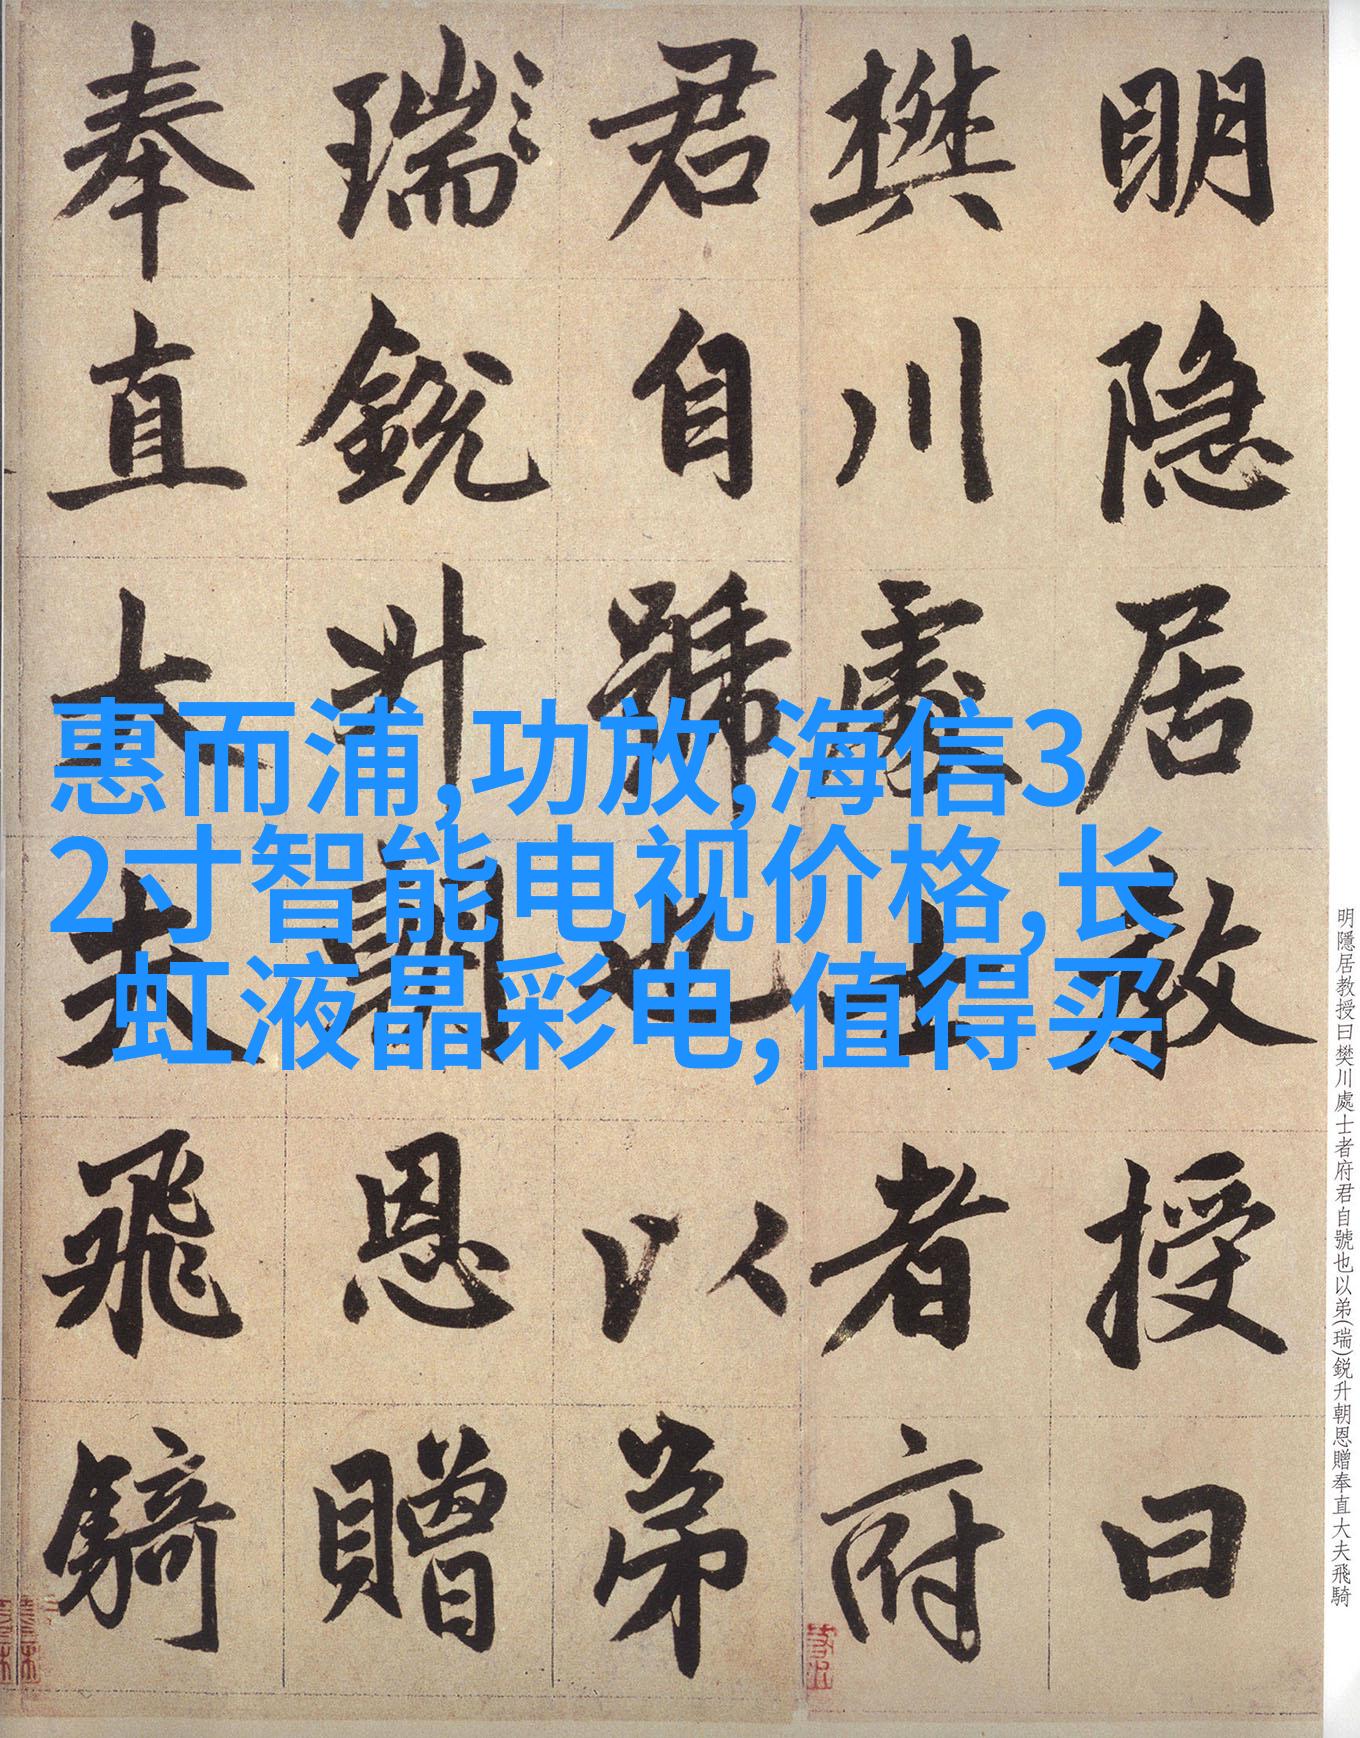 明隐居教授曰
樊川處士者府
君自號也以弟
瑞銳升朝恩贈
奉直大夫飛騎
惠而浦,功放,海信3
2寸智能电视价格,长
虹液晶彩电,值得买
明隱居教授曰樊川處士者府君自號也以弟(瑞)鋭升朝恩贈奉直大夫飛騎